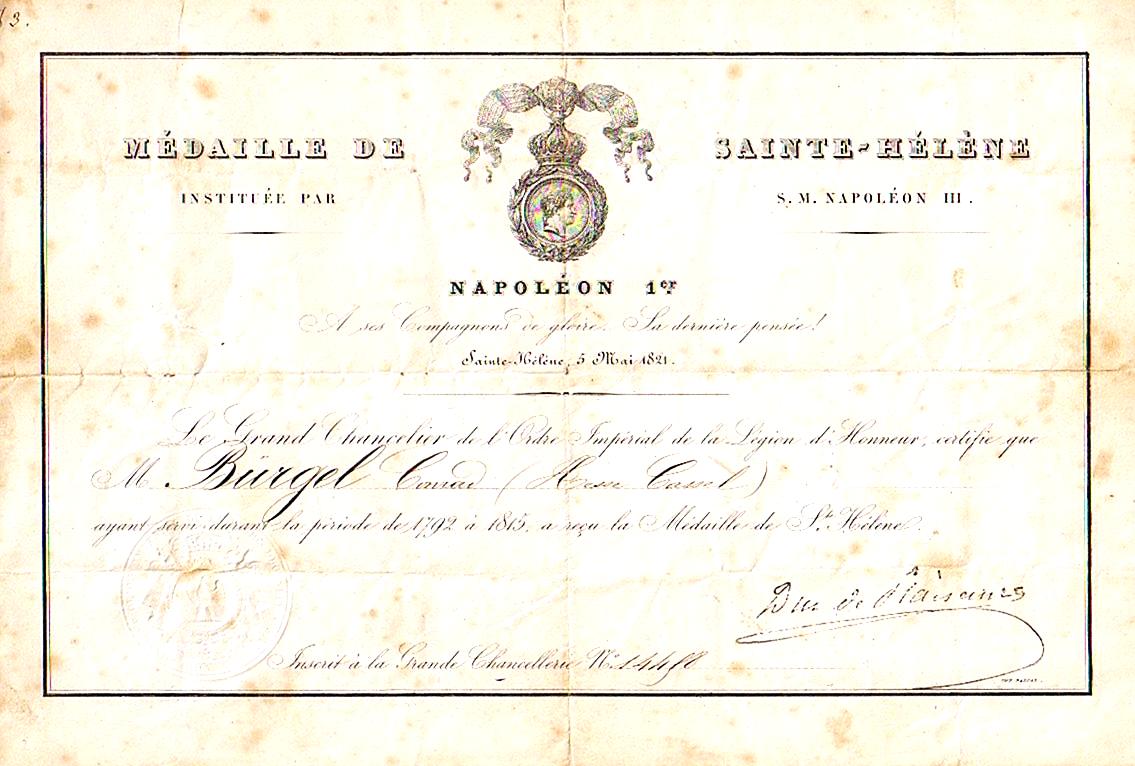 3.
MÉDAILLE DE SAINTE-HÉLÈNE
INSTITUÉE PAR S. M. NAPOLÉON III.
NAPOLÉON 1er
A ses Compagnons de gloire. Sa dernière pensée!
Sainte-Hélène, 5 Mai 1821.
Le Grand Chancelier de l'Ordre Impérial de la Légion d'Honneur, certifie que
M. Bürgel Conrad (Hesse Cassel)
ayant servi durant la période de 1792 à 1815, a reçu la Médaille de Ste Hélène.
Duc de Plaisance
Inscrit à la Grande Chancellerie No